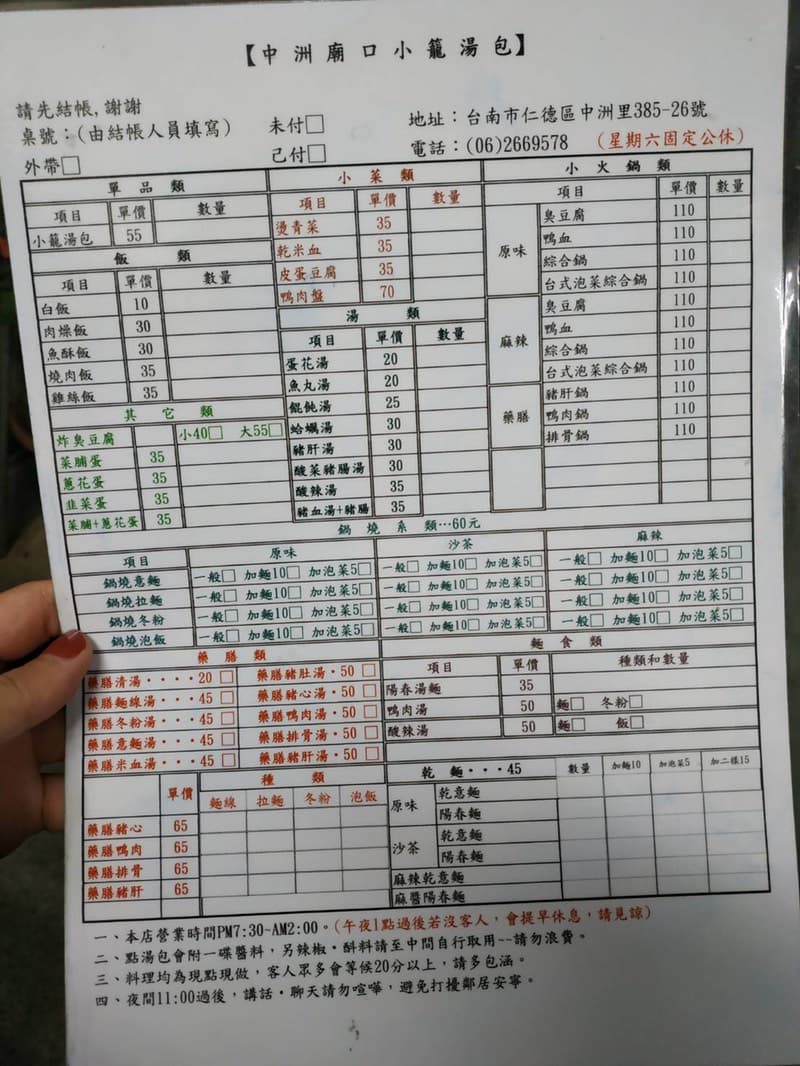 【中洲廟口小籠湯包】
請先結帳,謝謝
桌號：(由結帳人員填寫) 未付□ 地址：台南市仁德區中洲里385-26號
外帶□ 己付□ 電話：(06)2669578 (星期六固定公休)
單品類
項目 單價 數量
小籠湯包 55
飯類
項目 單價 數量
白飯 10
肉燥飯 30
魚酥飯 30
燒肉飯 35
雞絲飯 35
其它類
炸臭豆腐 小40□ 大55□
菜脯蛋 35
蔥花蛋 35
韭菜蛋 35
菜脯+蔥花蛋 35
小菜類
項目 單價 數量
燙青菜 35
乾米血 35
皮蛋豆腐 35
鴨肉盤 70
湯類
項目 單價 數量
蛋花湯 20
魚丸湯 20
餛飩湯 25
蛤蠣湯 30
豬肝湯 30
酸菜豬腸湯 30
酸辣湯 35
豬血湯+豬腸 35
小火鍋類
項目 單價 數量
原味
臭豆腐 110
鴨血 110
綜合鍋 110
台式泡菜綜合鍋 110
麻辣
臭豆腐 110
鴨血 110
綜合鍋 110
台式泡菜綜合鍋 110
藥膳
豬肝鍋 110
鴨肉鍋 110
排骨鍋 110
鍋燒系類…60元
項目 原味 沙茶 麻辣
鍋燒意麵 一般□ 加麵10□ 加泡菜5□ 一般□ 加麵10□ 加泡菜5□ 一般□ 加麵10□ 加泡菜5□
鍋燒拉麵 一般□ 加麵10□ 加泡菜5□ 一般□ 加麵10□ 加泡菜5□ 一般□ 加麵10□ 加泡菜5□
鍋燒冬粉 一般□ 加麵10□ 加泡菜5□ 一般□ 加麵10□ 加泡菜5□ 一般□ 加麵10□ 加泡菜5□
鍋燒泡飯 一般□ 加麵10□ 加泡菜5□ 一般□ 加麵10□ 加泡菜5□ 一般□ 加麵10□ 加泡菜5□
藥膳類
藥膳清湯····20□ 藥膳豬肚湯·50□
藥膳麵線湯··45□ 藥膳豬心湯·50□
藥膳冬粉湯··45□ 藥膳鴨肉湯·50□
藥膳意麵湯··45□ 藥膳排骨湯·50□
藥膳米血湯··45□ 藥膳豬肝湯·50□
單價 種類
麵線 拉麵 冬粉 泡飯
藥膳豬心 65
藥膳鴨肉 65
藥膳排骨 65
藥膳豬肝 65
麵食類
項目 單價 種類和數量
陽春湯麵 35
鴨肉湯 50 麵□ 冬粉□
酸辣湯 50 麵□ 飯□
乾麵···45 數量 加麵10 加泡菜5 加二樣15
原味
乾意麵
陽春麵
沙茶
乾意麵
陽春麵
麻辣乾意麵
麻醬陽春麵
一、本店營業時間PM7:30~AM2:00。(午夜1點過後若沒客人，會提早休息，請見諒)
二、點湯包會附一碟醬料，另辣椒·酙料請至中間自行取用--請勿浪費。
三、料理均為現點現做，客人眾多會等候20分以上，請多包涵。
四、夜間11:00過後，講話·聊天請勿喧嘩，避免打擾鄰居安寧。